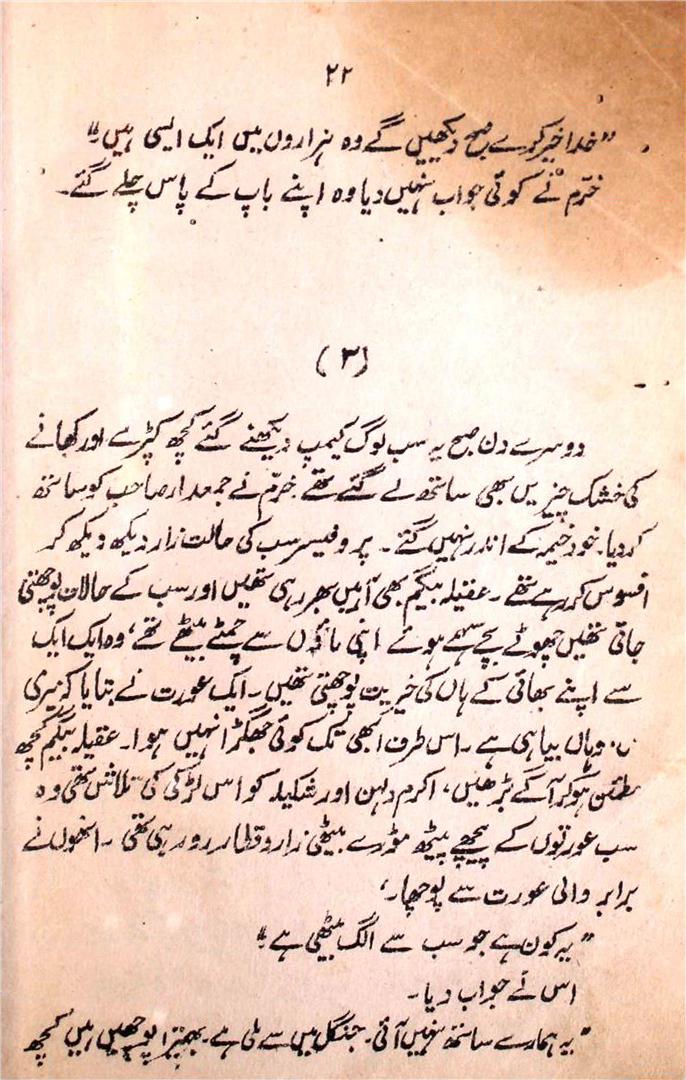 ۲۲
”خدا خیر کرے صبح دیکھیں گے وہ ہزاروں میں ایک ایسی ہیں۔“
خرّم نے کوئی جواب نہیں دیا وہ اپنے باپ کے پاس چلے گئے۔
(۳)
دوسرے دن صبح یہ سب لوگ کیمپ دیکھنے گئے کچھ کپڑے اور کھانے
کی خشک چیزیں بھی ساتھ لے گئے تھے خرّم نے جمعدار صاحب کو ساتھ
کر دیا۔ خود خیمہ کے اندر نہیں گئے۔ پروفیسر سب کی حالت زار دیکھ دیکھ کر
افسوس کر رہے تھے۔ عقیلہ بیگم بھی آہیں بھر رہی تھیں اور سب کے حالات پوچھتی
جاتی تھیں چھوٹے بچے سہمے ہوئے اپنی ماؤں سے چمٹے بیٹھے تھے، وہ ایک ایک
سے اپنے بھائی کے ہاں کی خیریت پوچھتی تھیں۔ ایک عورت نے بتایا کہ میری
وہاں بیاہی ہے۔ اس طرف ابھی تک کوئی جھگڑا نہیں ہوا۔ عقیلہ بیگم کچھ
مطمئن ہو کر آگے بڑھیں، اکرم دلہن اور شکیلہ کو اس لڑکی کی تلاش تھی وہ
سب عورتوں کے پیچھے پیٹھ موڑے بیٹھی زار و قطار رو رہی تھی۔ انھوں نے
برابر والی عورت سے پوچھا۔
”یہ کون ہے جو سب سے الگ بیٹھی ہے۔“
اس نے جواب دیا۔
”یہ ہمارے ساتھ نہیں آئی۔ جنگل میں سے ملی ہے۔ بھتیرا پوچھیں ہیں کچھ